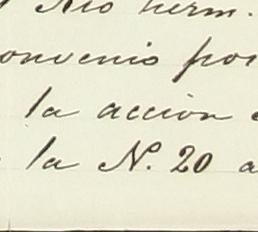 Río herm.
onvenio por
la acción
la N. 20 a